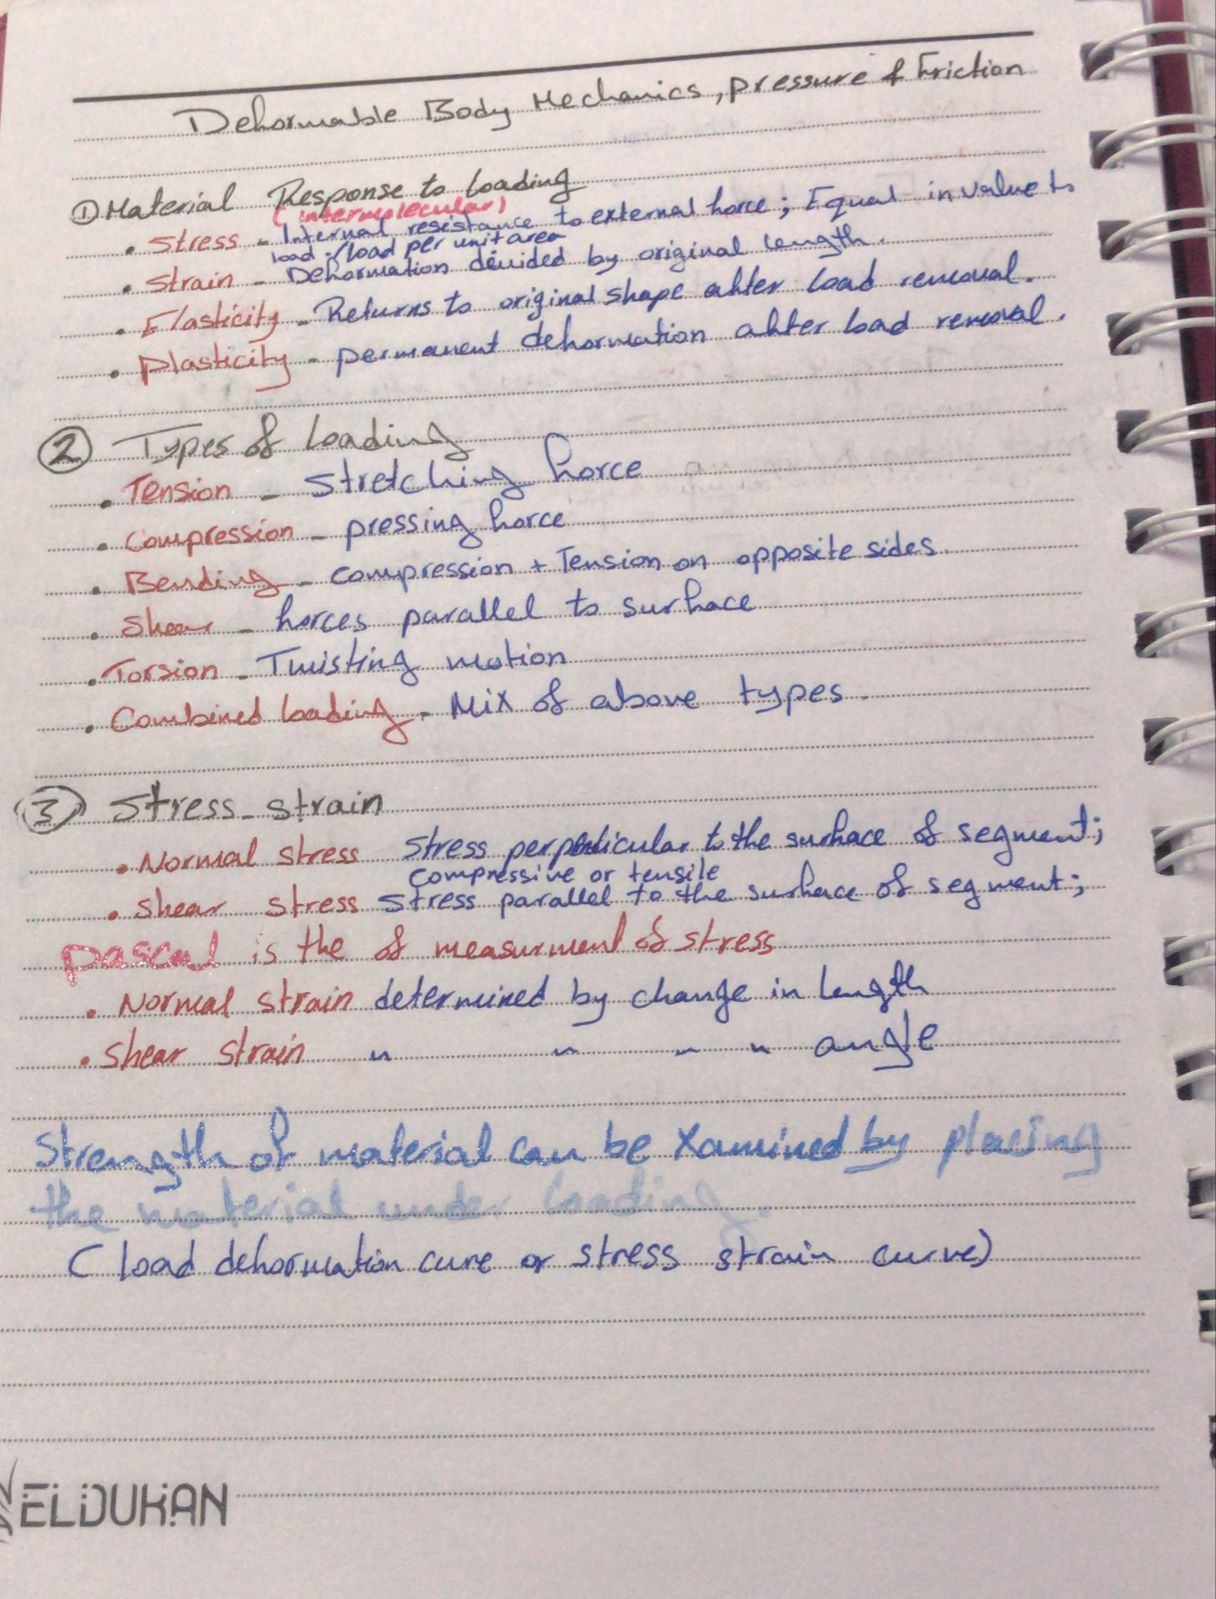 Deformable Body Mechanics, pressure & Friction
① Material Response to loading
(intermolecular)
• Stress - Internal resistance to external force; Equal in value to
load / load per unit area
• Strain - Deformation devided by original length.
• Elasticity - Returns to original shape after load removal.
• plasticity - permanent deformation after load removal.
② Types of loading
• Tension - Stretching force
• Compression - pressing force
• Bending - compression + Tension on opposite sides.
• Shear - forces parallel to surface
• Torsion - Twisting motion
• Combined loading - Mix of above types.
③ Stress-strain
• Normal stress stress perpendicular to the surface of segment;
compressive or tensile
• Shear stress stress parallel to the surface of segment;
pascal is the of measurment of stress
• Normal strain determined by change in length
• Shear strain " " " " angle
Strength of material can be Xamined by placing
the material under loading.
( load deformation curve or stress strain curve)
ELDUKAN